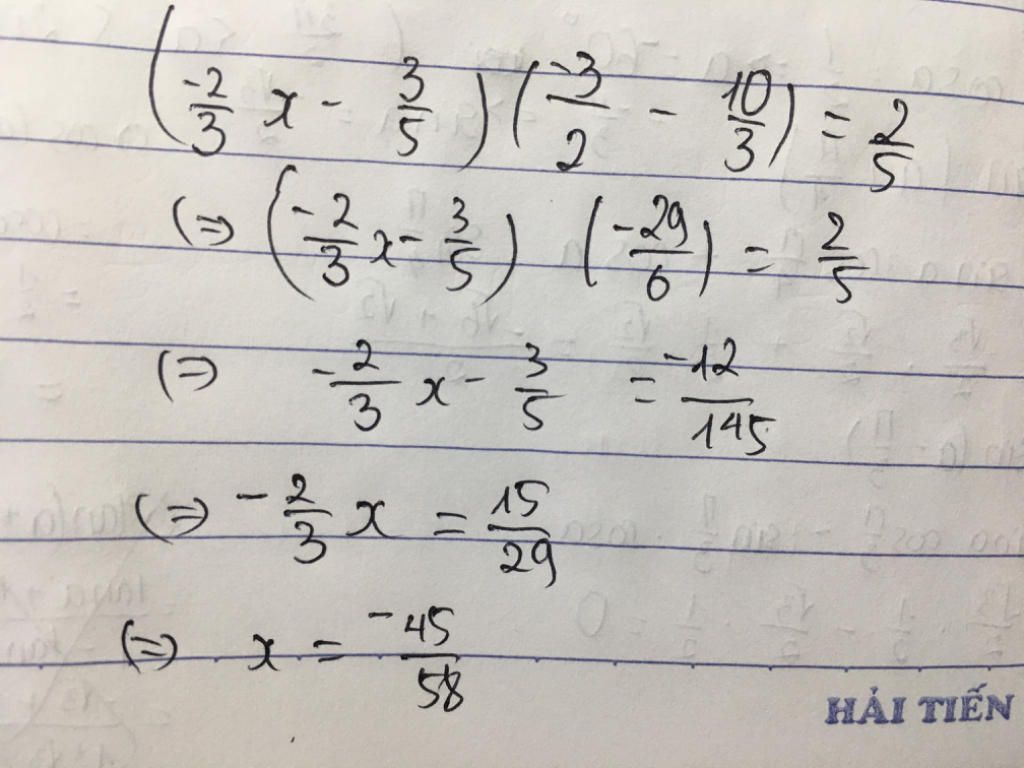 (-2/3 x - 3/5)(-3/2 - 10/3) = 2/5
(=> (-2/3 x - 3/5) (-29/6) = 2/5
(=> -2/3 x - 3/5 = -12/145
(=> -2/3 x = 15/29
(=> x = -45/58
HẢI TIẾN